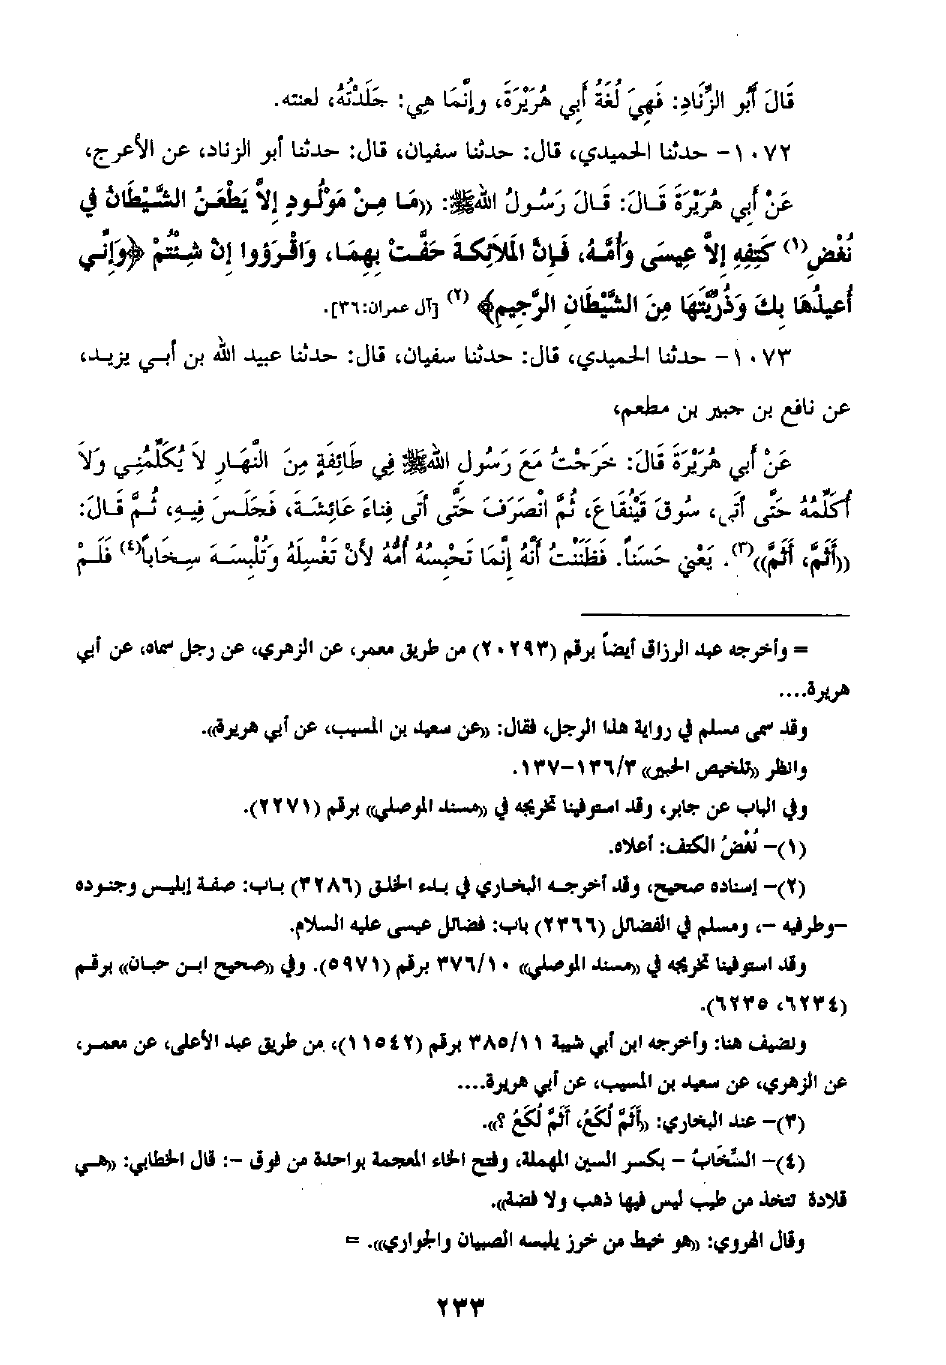 قَالَ أَبُو الزِّنَادِ: فَهِيَ لُغَةُ أَبِي هُرَيْرَةَ، وإنَّمَا هِي: جَلَدْتُهُ، لعنته.
١٠٧٢- حدثنا الحميدي، قال: حدثنا سفيان، قال: حدثنا أبو الزناد، عن الأعرج،
عَنْ أَبِي هُرَيْرَةَ قَالَ: قَالَ رَسُولُ اللهِ ﷺ: ((مَا مِنْ مَوْلُودٍ إِلاَّ يَطْعَنُ الشَّيْطَانُ فِي
نُغْضِ(١) كَتِفِهِ إِلاَّ عِيسَى وَأُمَّهُ، فَإِنَّ الْمَلاَئِكَةَ حَفَّتْ بِهِمَا، وَاقْرَؤُوا إِنْ شِئْتُمْ ﴿وَإِنِّي
أُعِيذُهَا بِكَ وَذُرِّيَّتَهَا مِنَ الشَّيْطَانِ الرَّجِيمِ﴾ (٢) [آل عمران:٣٦].
١٠٧٣- حدثنا الحميدي، قال: حدثنا سفيان، قال: حدثنا عبيد الله بن أبي يزيد،
عن نافع بن جبير بن مطعم،
عَنْ أَبِي هُرَيْرَةَ قَالَ: خَرَجْتُ مَعَ رَسُولِ اللهِ ﷺ فِي طَائِفَةٍ مِنَ النَّهَارِ لاَ يُكَلِّمُنِي وَلاَ
أُكَلِّمُهُ حَتَّى أَتَى، سُوقَ قَيْنُقَاعَ، ثُمَّ انْصَرَفَ حَتَّى أَتَى فِنَاءَ عَائِشَةَ، فَجَلَسَ فِيهِ، ثُمَّ قَالَ:
((أَثَمَّ، أَثَمَّ))(٣). يَعْنِي حَسَناً. فَظَنَنْتُ أَنَّهُ إِنَّمَا تَحْبِسُهُ أُمُّهُ لأَنْ تَغْسِلَهُ وَتُلْبِسَهُ سِخَاباً(٤) فَلَمْ
= وأخرجه عبد الرزاق أيضاً برقم (٢٠٢٩٣) من طريق معمر، عن الزهري، عن رجل سماه، عن أبي
هريرة....
وقد سمى مسلم في رواية هذا الرجل، فقال: ((عن سعيد بن المسيب، عن أبي هريرة)).
وانظر ((تلخيص الحبير)) ١٣٦/٣-١٣٧.
وفي الباب عن جابر، وقد استوفينا تخريجه في ((مسند الموصلي)) برقم (٢٢٧١).
(١)- نُغْضُ الكتف: أعلاه.
(٢)- إسناده صحيح، وقد أخرجه البخاري في بدء الخلق (٣٢٨٦) باب: صفة إبليس وجنوده
-وطرفيه -، ومسلم في الفضائل (٢٣٦٦) باب: فضائل عيسى عليه السلام.
وقد استوفينا تخريجه في ((مسند الموصلي)) ٣٧٦/١٠ برقم (٥٩٧١). وفي ((صحيح ابن حبان)) برقم
(٦٢٣٤، ٦٢٣٥).
ونضيف هنا: وأخرجه ابن أبي شيبة ٣٨٥/١١ برقم (١١٥٤٢)، من طريق عبد الأعلى، عن معمر،
عن الزهري، عن سعيد بن المسيب، عن أبي هريرة....
(٣)- عند البخاري: ((أَثَمَّ لُكَعُ، أَثَمَّ لُكَعُ ؟)).
(٤)- السِّخَابُ - بكسر السين المهملة، وفتح الخاء المعجمة بواحدة من فوق -: قال الخطابي: ((هي
قلادة تتخذ من طيب ليس فيها ذهب ولا فضة)).
وقال الهروي: ((هو خيط من خرز يلبسه الصبيان والجواري)). =
٢٣٣